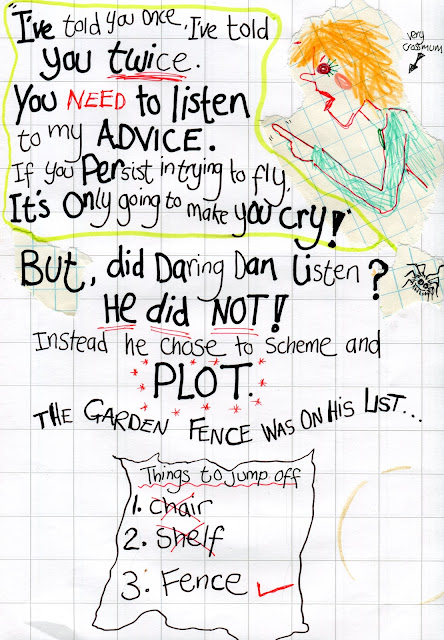 "I've told you once, I've told
you twice.
You NEED to listen
to my ADVICE.
If you Persist in trying to fly,
It's Only going to make you cry!"
very
cross mum
But, did Daring Dan Listen?
He did NOT!
Instead he chose to scheme and
PLOT.
THE GARDEN FENCE WAS ON HIS LIST...
Things to jump off
1. Chair
2. Shelf
3. Fence ✓